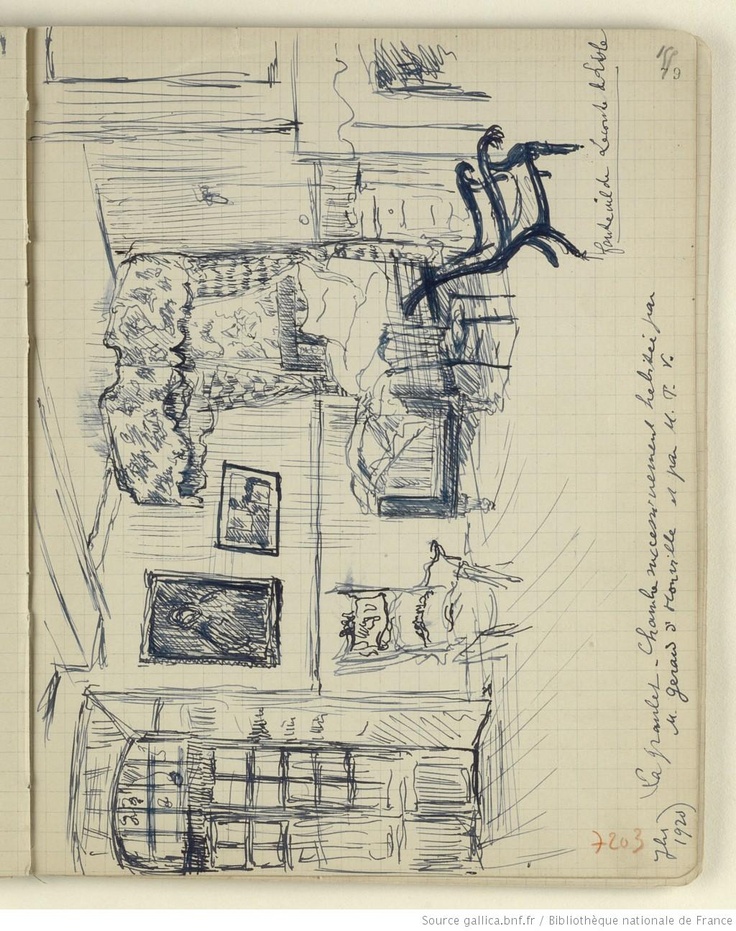 79
fauteuil de Leconte de Lisle
La Graulet - Chambre successivement habitée par
M. Gérard d'Houville et par M. T. V.
1920)
7203
Source gallica.bnf.fr / Bibliothèque nationale de France